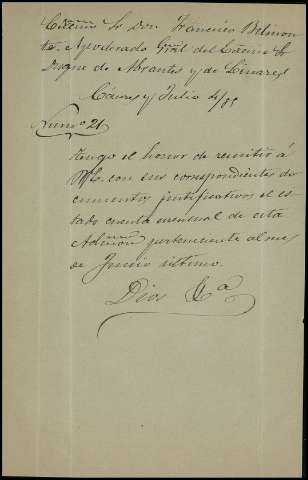 Excmo Sr Don Francisco Belmon
te, Apoderado Gral del Excmo Sr
Duque de Abrantes y de Linares
Cáceres y Julio 4/85
Numo 21
Tengo el honor de remitir á
V.E. con sus correspondientes do
cumentos justificativos el es
tado cuenta mensual de esta
Admon perteneciente al mes
de Junio ultimo.
Dios &a